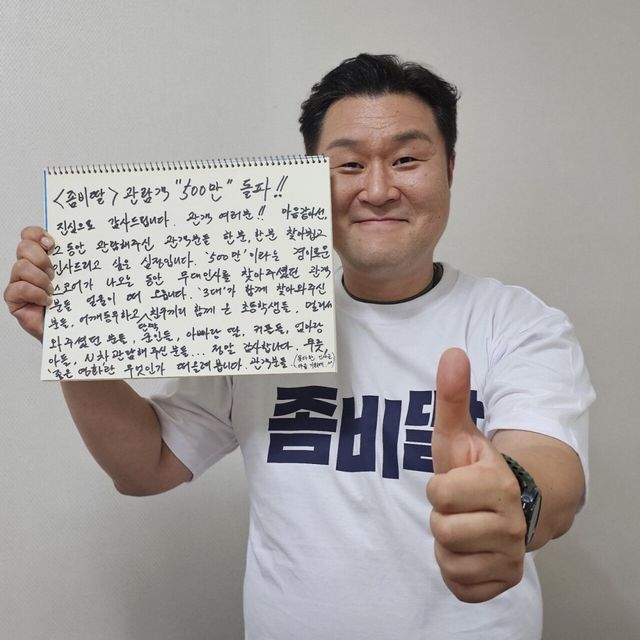 <좀비딸> 관람객 "500만" 돌파!!
진심으로 감사드립니다. 관객 여러분!! 마음같아선,
그동안 관람해주신 관객분들 한분, 한분 찾아뵙고
인사드리고 싶은 심정입니다. '500만'이라는 경이로운
스코어가 나오는 동안 무대인사를 찾아주셨던 관객
분들 얼굴이 떠 오릅니다. '3대'가 함께 찾아와주신
분들, 어깨동무하고 친구끼리 함께 온 초등학생들, 멀리서
와주셨던 분들, 군인들, 아빠랑 딸, 커플들, 엄마랑
아들, N차 관람해 주신 분들... 정말 감사합니다. 무릇,
'좋은 영화란 무엇인가' 떠올려 봅니다. 관객분들
좀비딸